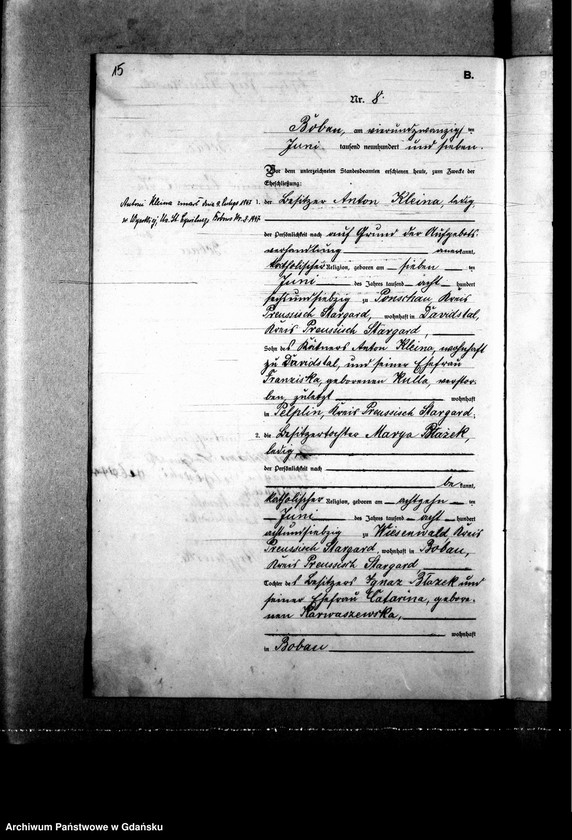 15
B.
Nr. 8.
Boban, am vierundzwanzigsten
Juni tausend neunhundert und sieben.
Vor dem unterzeichneten Standesbeamten erschienen heute, zum Zwecke der
Eheschließung:
1. der Besitzer Anton Kleina, ledig,
Antoni Kleina zmarł dnia 9. lutego 1945
w
der Persönlichkeit nach auf Grund der Aufgebots
verhandlung anerkannt,
katholischer Religion, geboren am sieben ten
Juni des Jahres tausend acht hundert
sechsundsiebzig zu Ponschau, Kreis
Preussisch Stargard, wohnhaft in Davidstal,
Kreis Preussisch Stargard,
Sohn des Kätners Anton Kleina, wohnhaft
zu Davidstal, und seiner Ehefrau
Franziska, geborenen Kulla, verstor-
ben, zuletzt wohnhaft
in Pelplin, Kreis Preussisch Stargard.
2. die Besitzertochter Marya Błażek,
ledig,
der Persönlichkeit nach
bekannt,
katholischer Religion, geboren am achtzehn ten
Juni des Jahres tausend acht hundert
achtundsiebzig zu Wiesenwald, Kreis
Preussisch Stargard, wohnhaft in Bobau,
Kreis Preussisch Stargard,
Tochter des Besitzers Ignaz Błażek und
seiner Ehefrau Catarina, gebore-
nen Karwaszewska,
wohnhaft
in Bobau
Archiwum Państwowe w Gdańsku